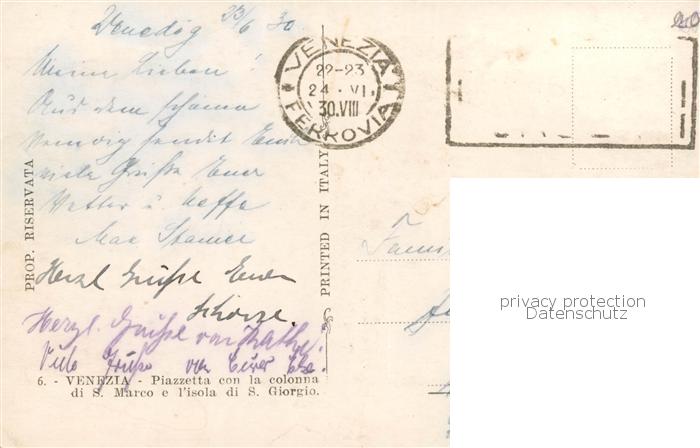 Venedig 23/6 30.
Meine Lieben!
Aus dem schönen
Venedig sendet Euch
viele Grüße Euer
Vetter u. Neffe
Max
Herzl Grüße Euer
Herzl. Grüße von Käthe.
Viele Grüße von Eurer
6. - VENEZIA - Piazzetta con la colonna
di S. Marco e l'isola di S. Giorgio.
PROP. RISERVATA
PRINTED IN ITALY
VENEZIA
22-23
24 · VI
30.VIII
FERROVIA
Fam
privacy protection
Datenschutz